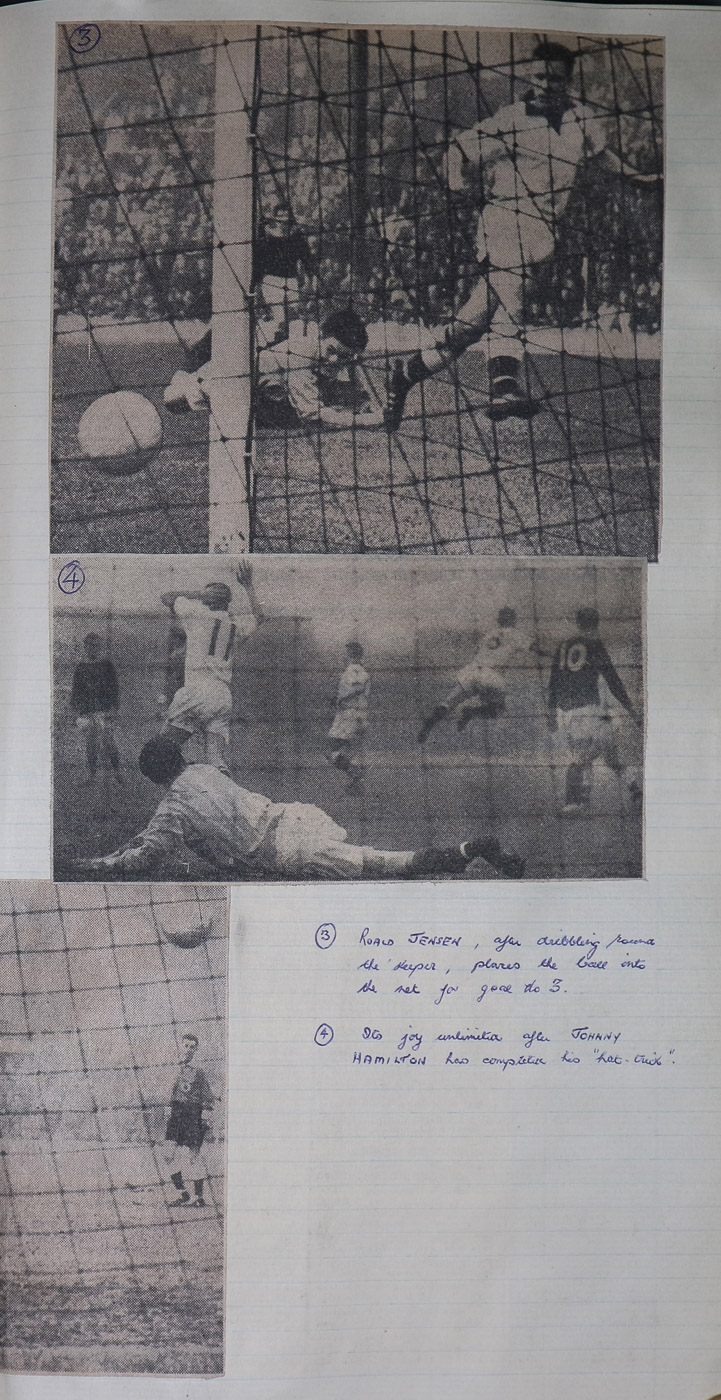 3
4
11
10
3 ROALD JENSEN, after dribbling round
the 'keeper, places the ball into
the net for goal No 3.
4 Its joy unlimited after JOHNNY
HAMILTON has completed his "hat-trick".